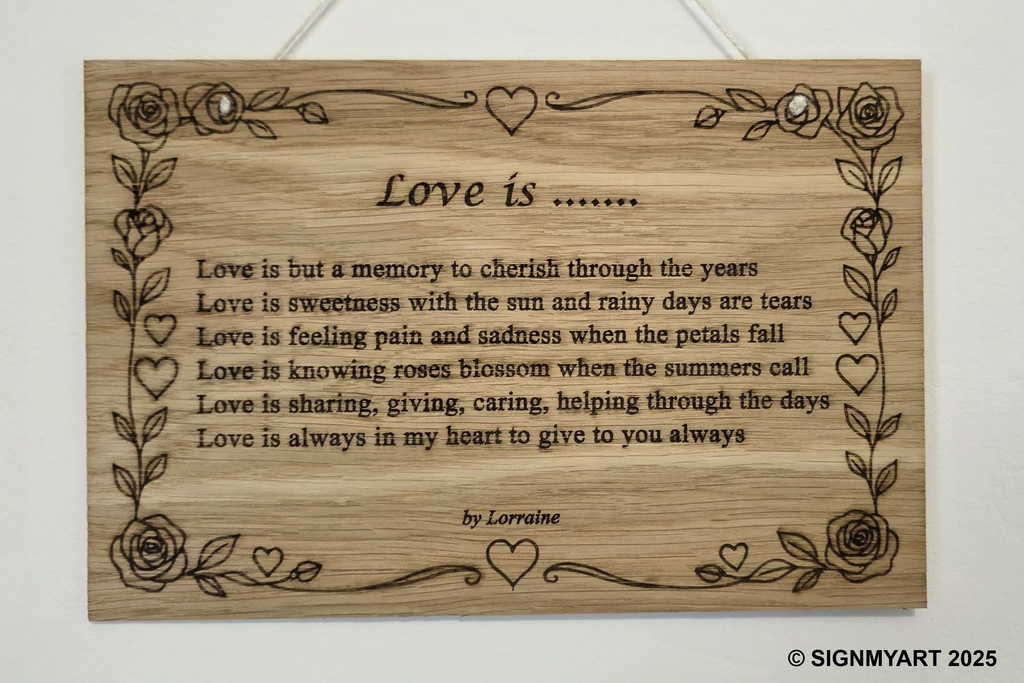 Love is .......
Love is but a memory to cherish through the years
Love is sweetness with the sun and rainy days are tears
Love is feeling pain and sadness when the petals fall
Love is knowing roses blossom when the summers call
Love is sharing, giving, caring, helping through the days
Love is always in my heart to give to you always
by Lorraine
© SIGNMYART 2025